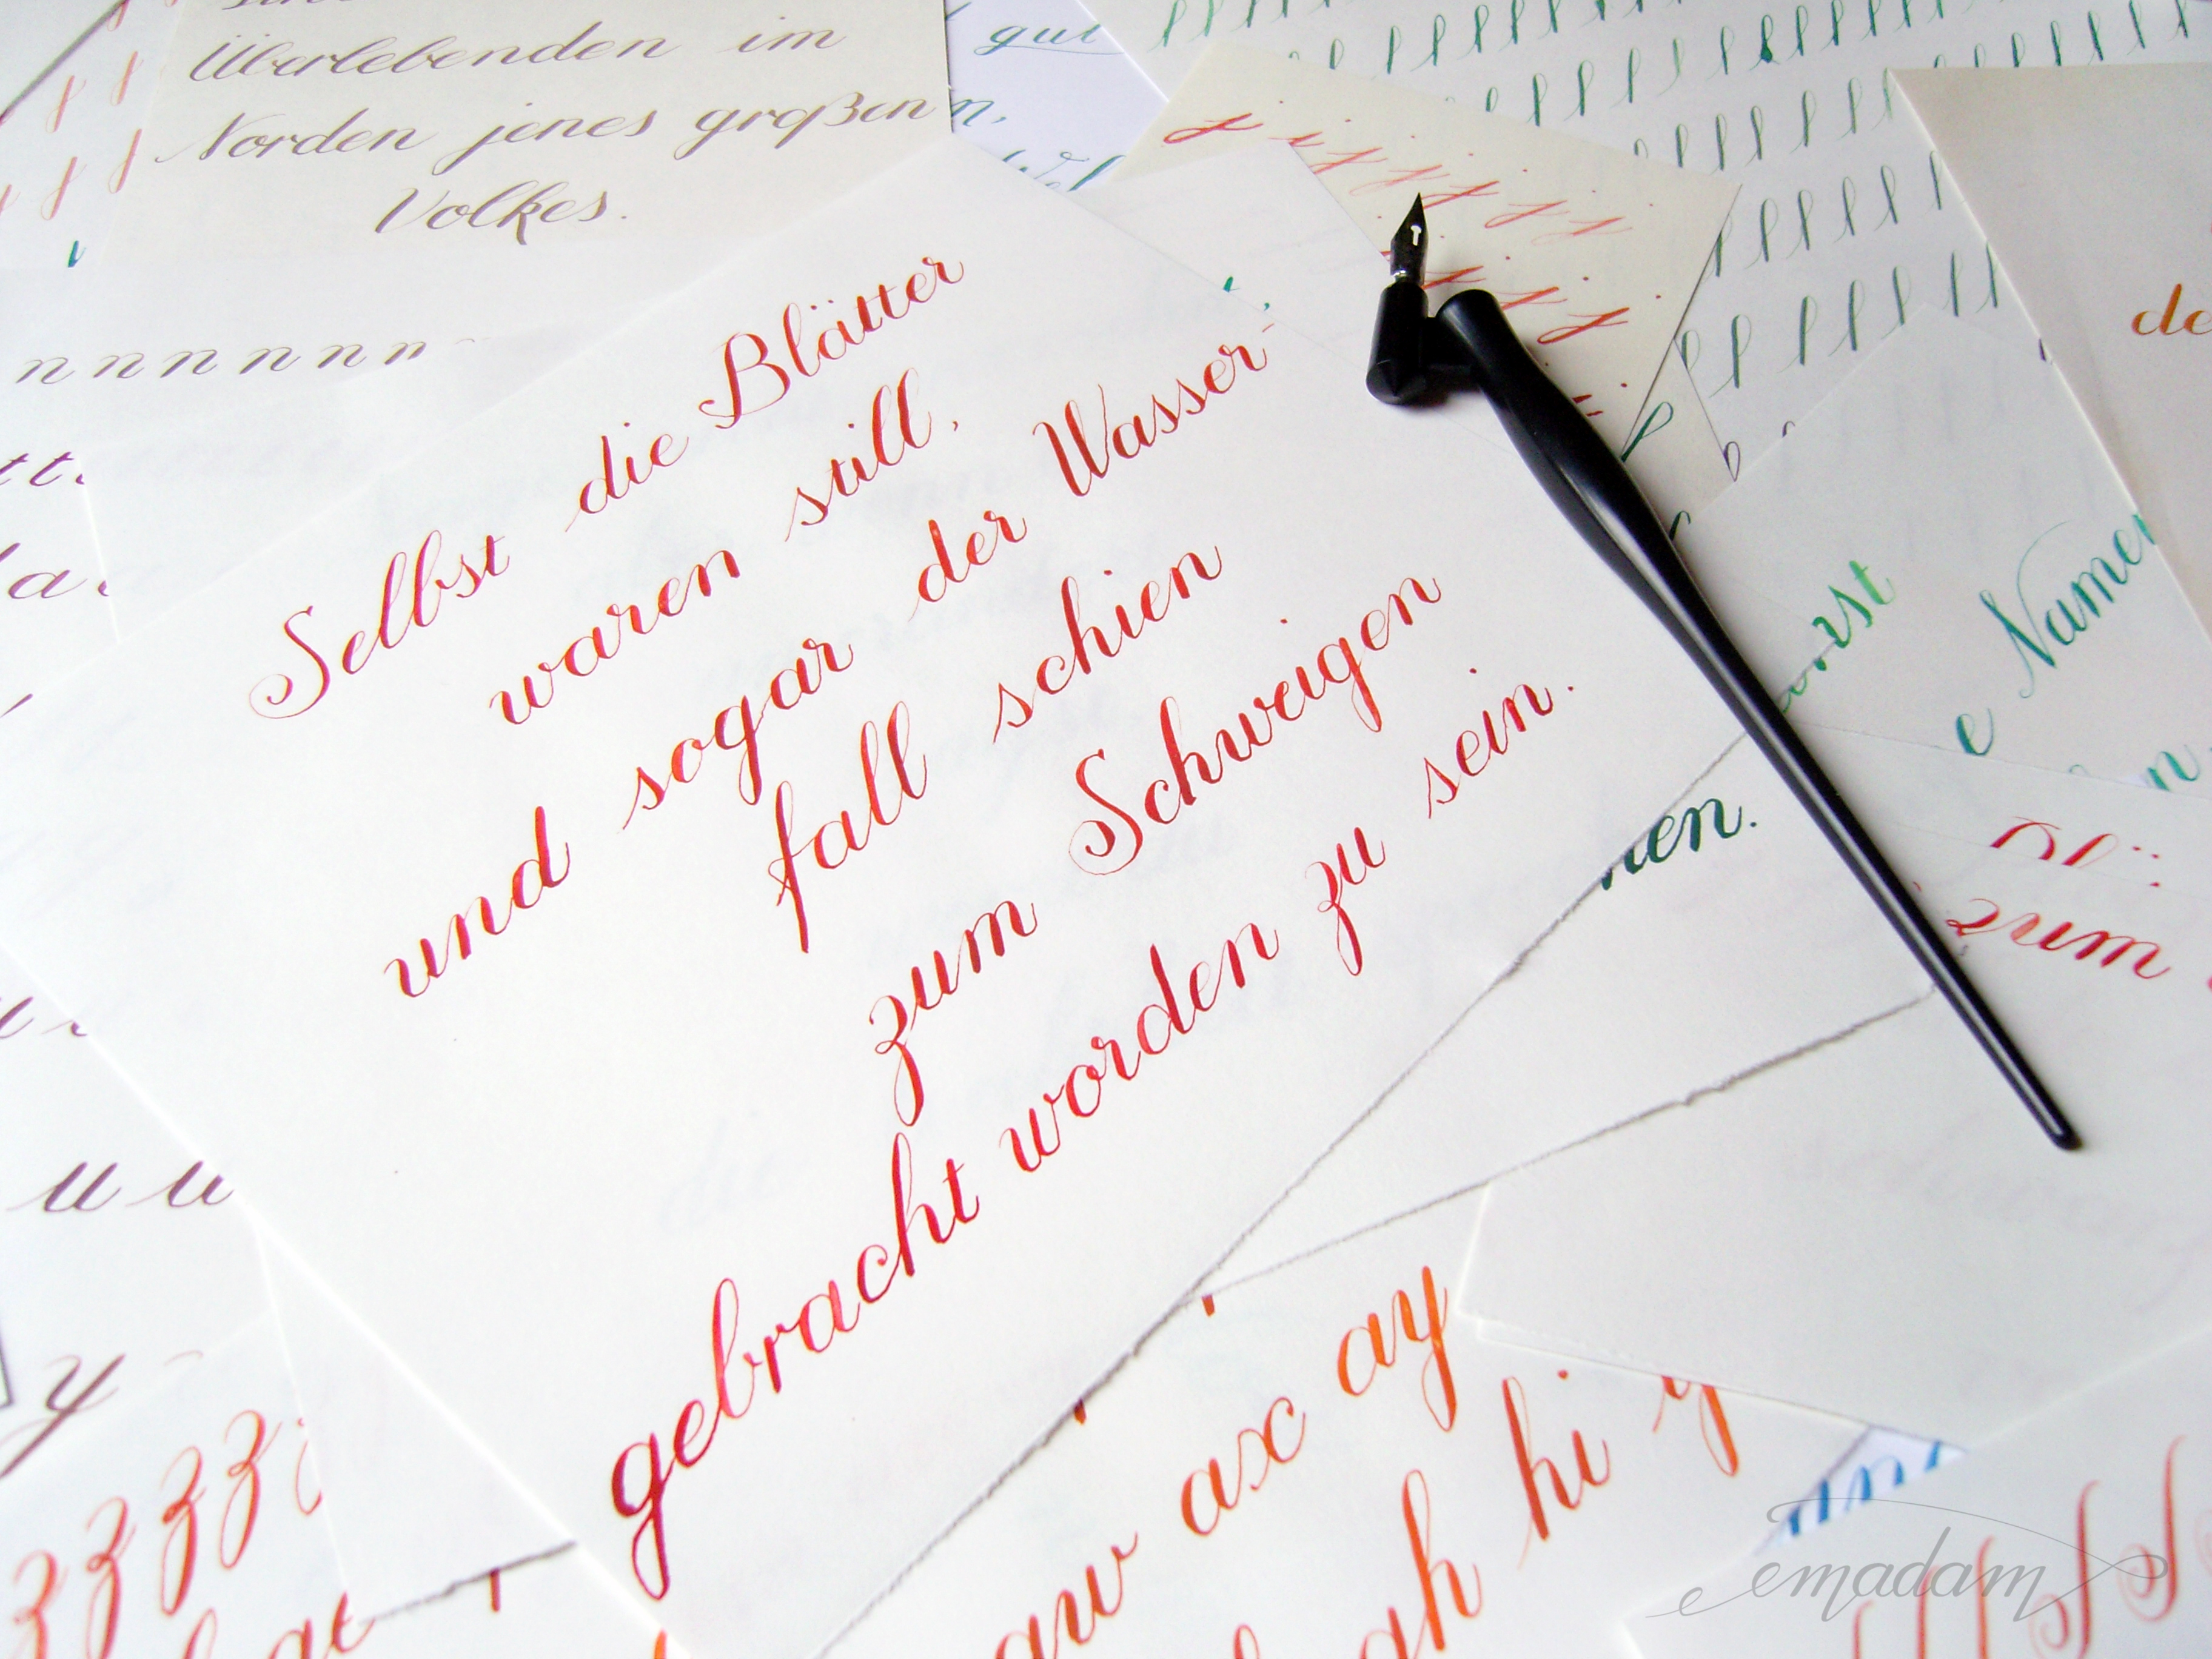 Überlebenden im
Norden jenes großen
Volkes.
gut
n n n n n n n
Selbst die Blätter
waren still,
und sogar der Wasser-
fall schien
zum Schweigen
gebracht worden zu sein.
j j j j j j
e Namen
zum
u u
y
z z z z
ay
ax
hi y
aw
ah
emadam